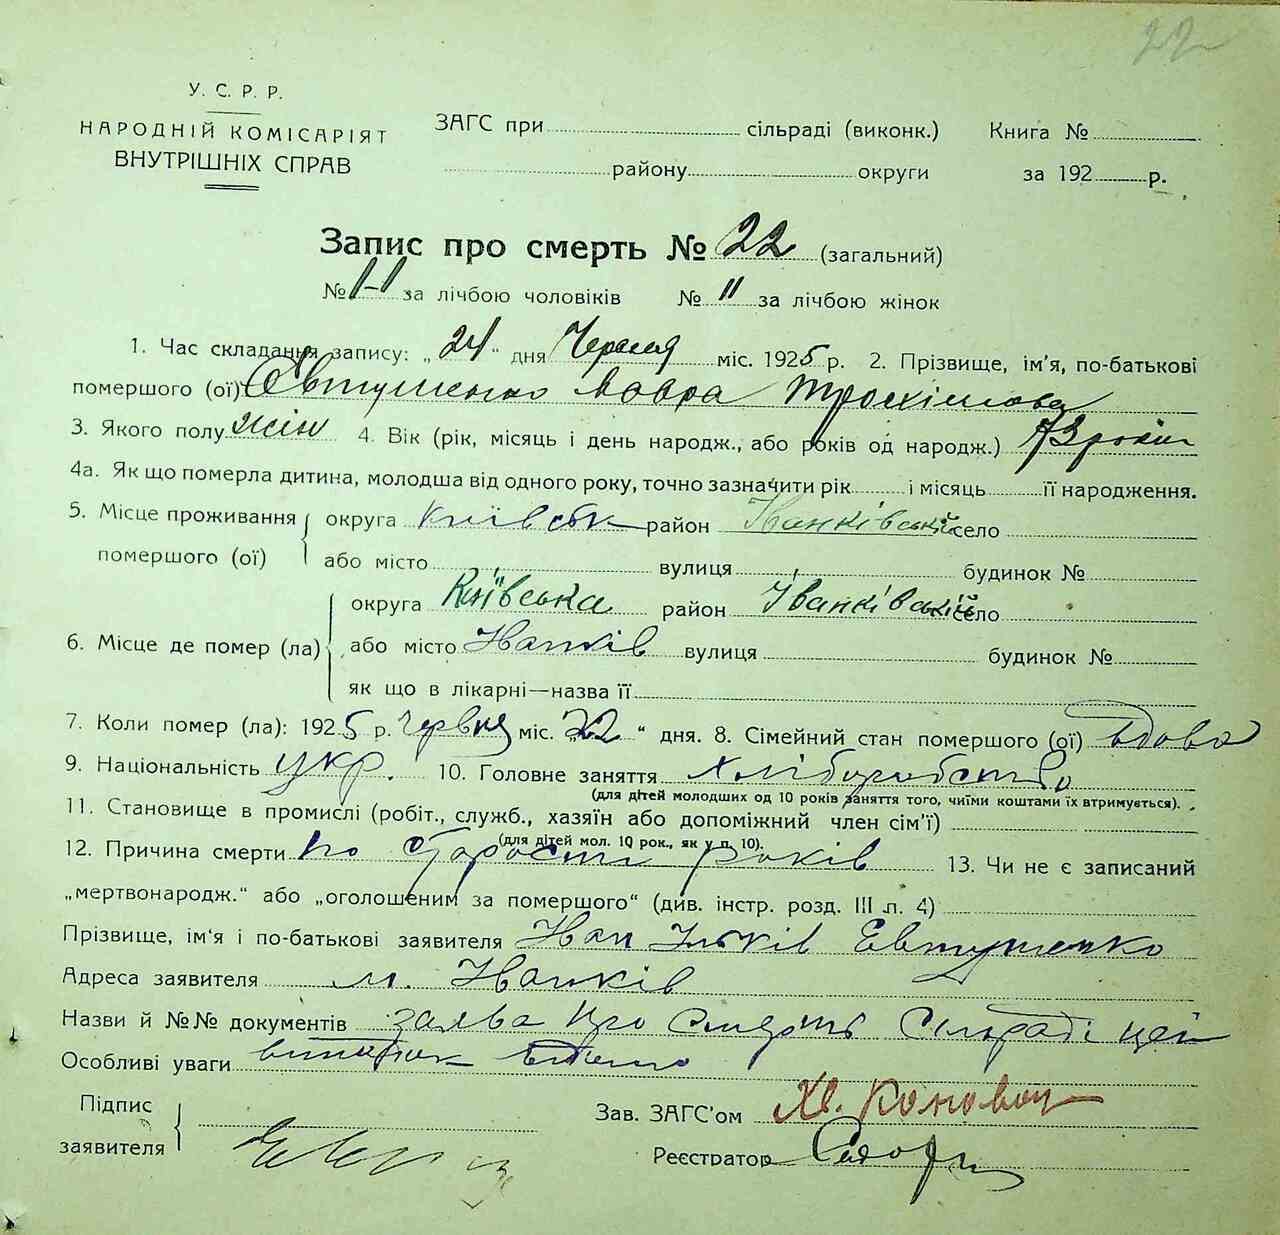 22
У. С. Р. Р.
НАРОДНІЙ КОМІСАРІЯТ
ВНУТРІШНІХ СПРАВ
ЗАГС при сільраді (виконк.)
району округи
Книга №
за 192 р.
Запис про смерть № 22 (загальний)
№ за лічбою чоловіків № 11 за лічбою жінок
1. Час складання запису: „24“ дня Червня міс. 1925 р. 2. Прізвище, ім'я, по-батькові
помершого (ої) Євтушенко Трохимова
3. Якого полу жін 4. Вік (рік, місяць і день народж., або років од народж.) 73 роки
4а. Як що померла дитина, молодша від одного року, точно зазначити рік і місяць її народження.
5. Місце проживання помершого (ої) округа Київськ район Іванківський село
або місто вулиця будинок №
6. Місце де помер (ла) округа Київська район Іванківський село
або місто Іванків вулиця будинок №
як що в лікарні—назва її
7. Коли помер (ла): 1925 р. Червня міс. „22“ дня. 8. Сімейний стан помершого (ої) вдова
9. Національність укр. 10. Головне заняття Хліборобство
(для дітей молодших од 10 років заняття того, чиїми коштами їх втримується).
11. Становище в промислі (робіт., служб., хазяїн або допоміжний член сім'ї)
(для дітей мол. 10 рок., як у п. 10).
12. Причина смерти по старости років 13. Чи не є записаний
„мертвонародж.“ або „оголошеним за помершого“ (див. інстр. розд. III п. 4)
Прізвище, ім'я і по-батькові заявителя Іван Ільків Євтушенко
Адреса заявителя м. Іванків
Назви й №№ документів заява про смерть Сільраді цей
Особливі уваги випадок відомо
Підпис
заявителя
Зав. ЗАГС'ом Хв.
Реєстратор